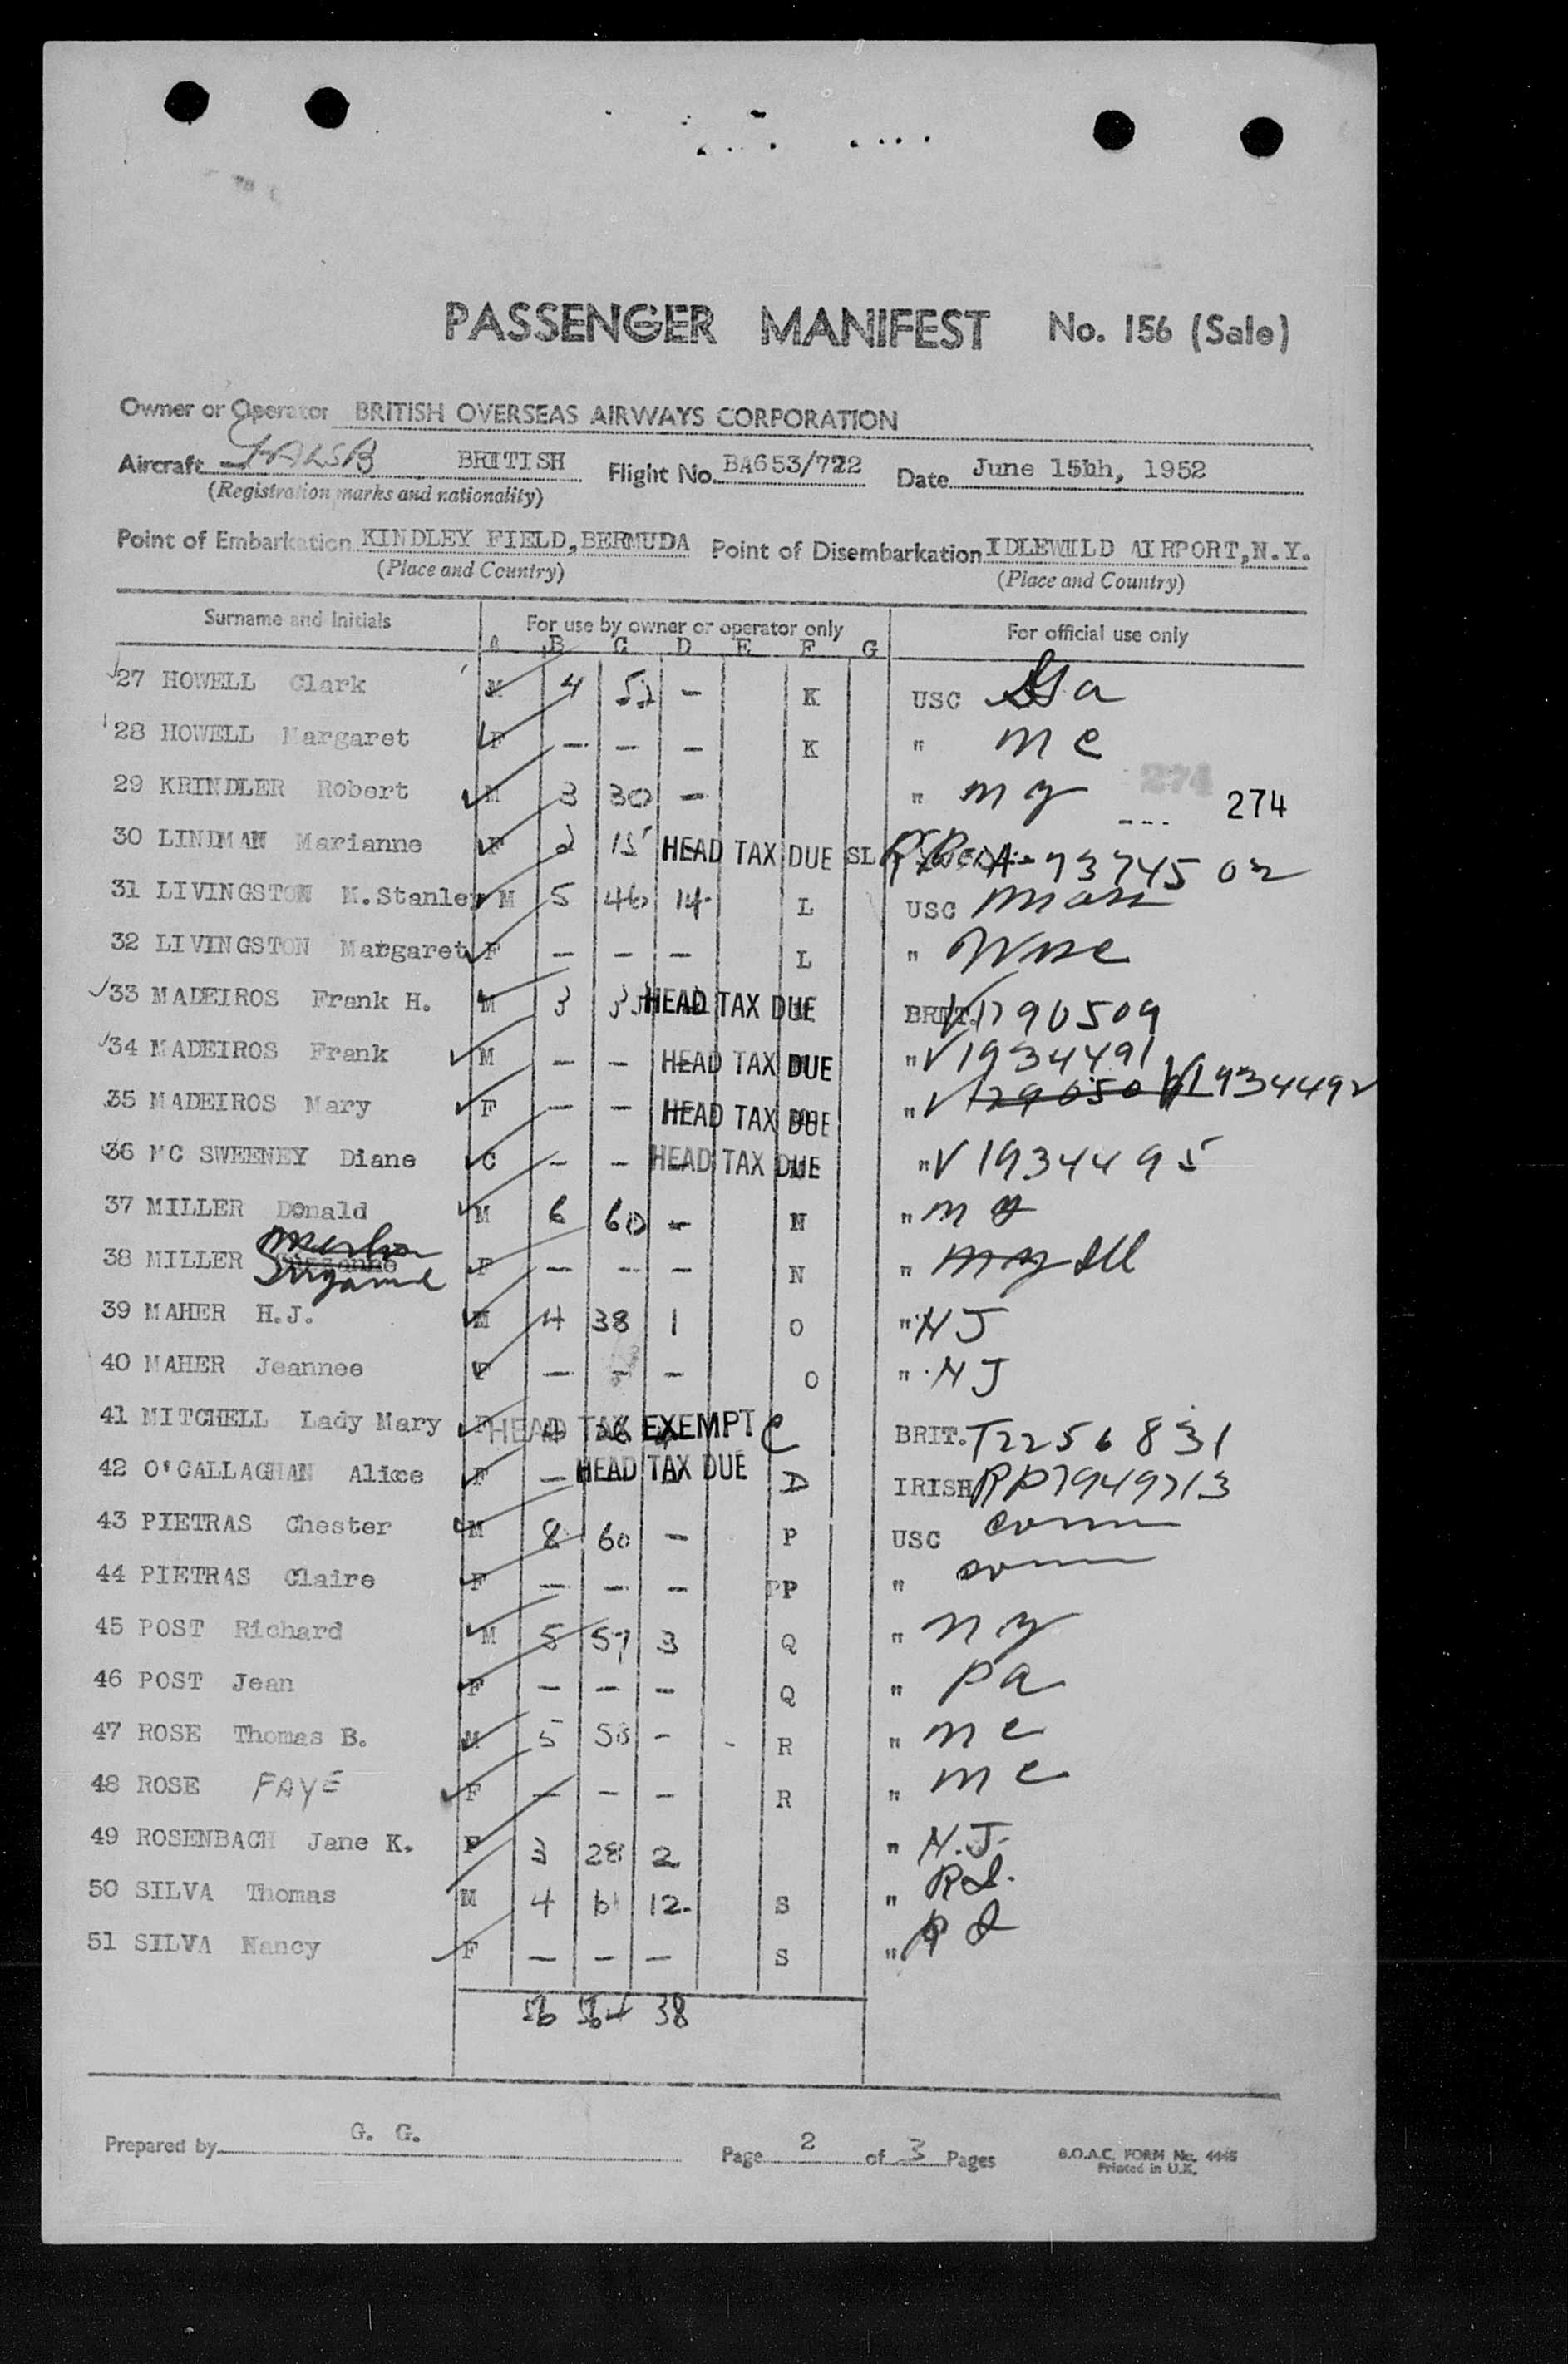 PASSENGER MANIFEST No. 156 (Sale)
Owner or Operator BRITISH OVERSEAS AIRWAYS CORPORATION
Aircraft BRITISH Flight No. BA653/722 Date June 15th, 1952
(Registration marks and nationality)
Point of Embarkation KINDLEY FIELD, BERMUDA Point of Disembarkation IDLEWILD AIRPORT, N.Y.
(Place and Country) (Place and Country)
Surname and Initials For use by owner or operator only For official use only
A B C D E F G
27 HOWELL Clark M 4 52 - K USC Ga
28 HOWELL Margaret F - - - K " me
29 KRINDLER Robert M 3 30 - " ny 274
274
30 LINDMAN Marianne F 2 15 HEAD TAX DUE SL A-7374502
31 LIVINGSTON M. Stanley M 5 46 14 L USC Mass
32 LIVINGSTON Margaret F - - - L "
33 MADEIROS Frank H. M 3 33 HEAD TAX DUE BRIT. V1290509
34 MADEIROS Frank M - - HEAD TAX DUE " V1934491
35 MADEIROS Mary F - - HEAD TAX DUE " V129050 V1934492
36 MC SWEENEY Diane C - - HEAD TAX DUE " V1934495
37 MILLER Donald M 6 60 - N "
38 MILLER Suzanne F - - - N " Ill
Suzanne
39 MAHER H.J. M 4 38 1 O " NJ
40 MAHER Jeannee F - - - O " NJ
41 MITCHELL Lady Mary F HEAD TAX EXEMPT C BRIT. T2256831
42 O'CALLAGHAN Alice F - HEAD TAX DUE D IRISH RP7949713
43 PIETRAS Chester M 8 60 - P USC Conn
44 PIETRAS Claire F - - - PP " Conn
45 POST Richard M 5 57 3 Q " ny
46 POST Jean F - - - Q " Pa
47 ROSE Thomas B. M 5 58 - - R " nc
48 ROSE FAYE F - - - R " nc
49 ROSENBACH Jane K. F 3 28 2 " N.J.
50 SILVA Thomas M 4 61 12 S " RI.
51 SILVA Nancy F - - - S " RI
56 564 38
Prepared by G. G. Page 2 of 3 Pages B.O.A.C. FORM No. 4445
Printed in U.K.